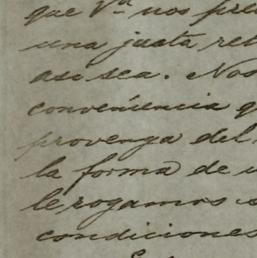 que Vª nos pre
una justa ret
asi sea. Nos
conveniencia q
provenga del
la forma de u
le rogamos s
condiciones